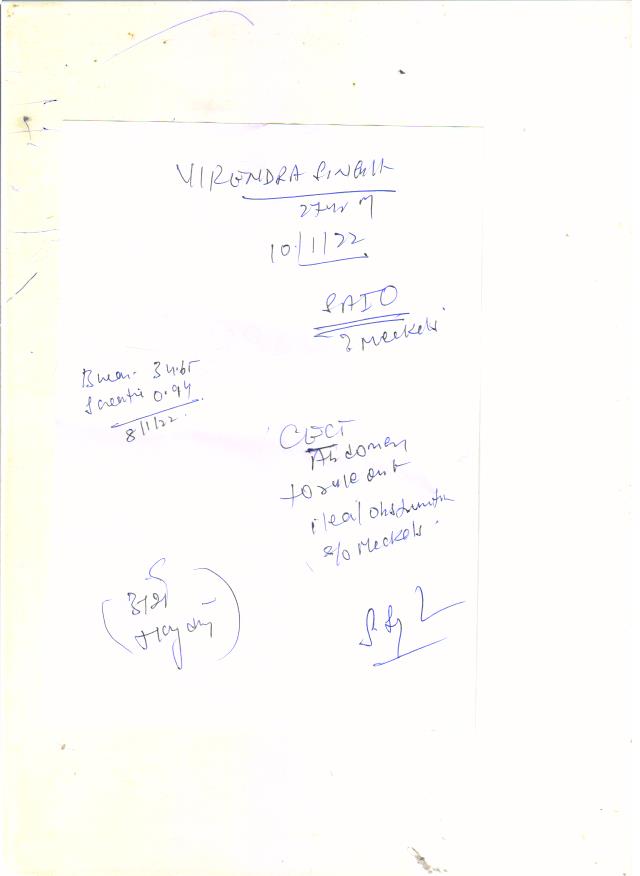 VIRENDRA SINGH
27yr M
10/1/22
SAIO
? Meckels
B urea. 34.65
S creatin 0.94
8/1/22
CECT
Abdomen
to rule out
ileal obstruction
s/o Meckels